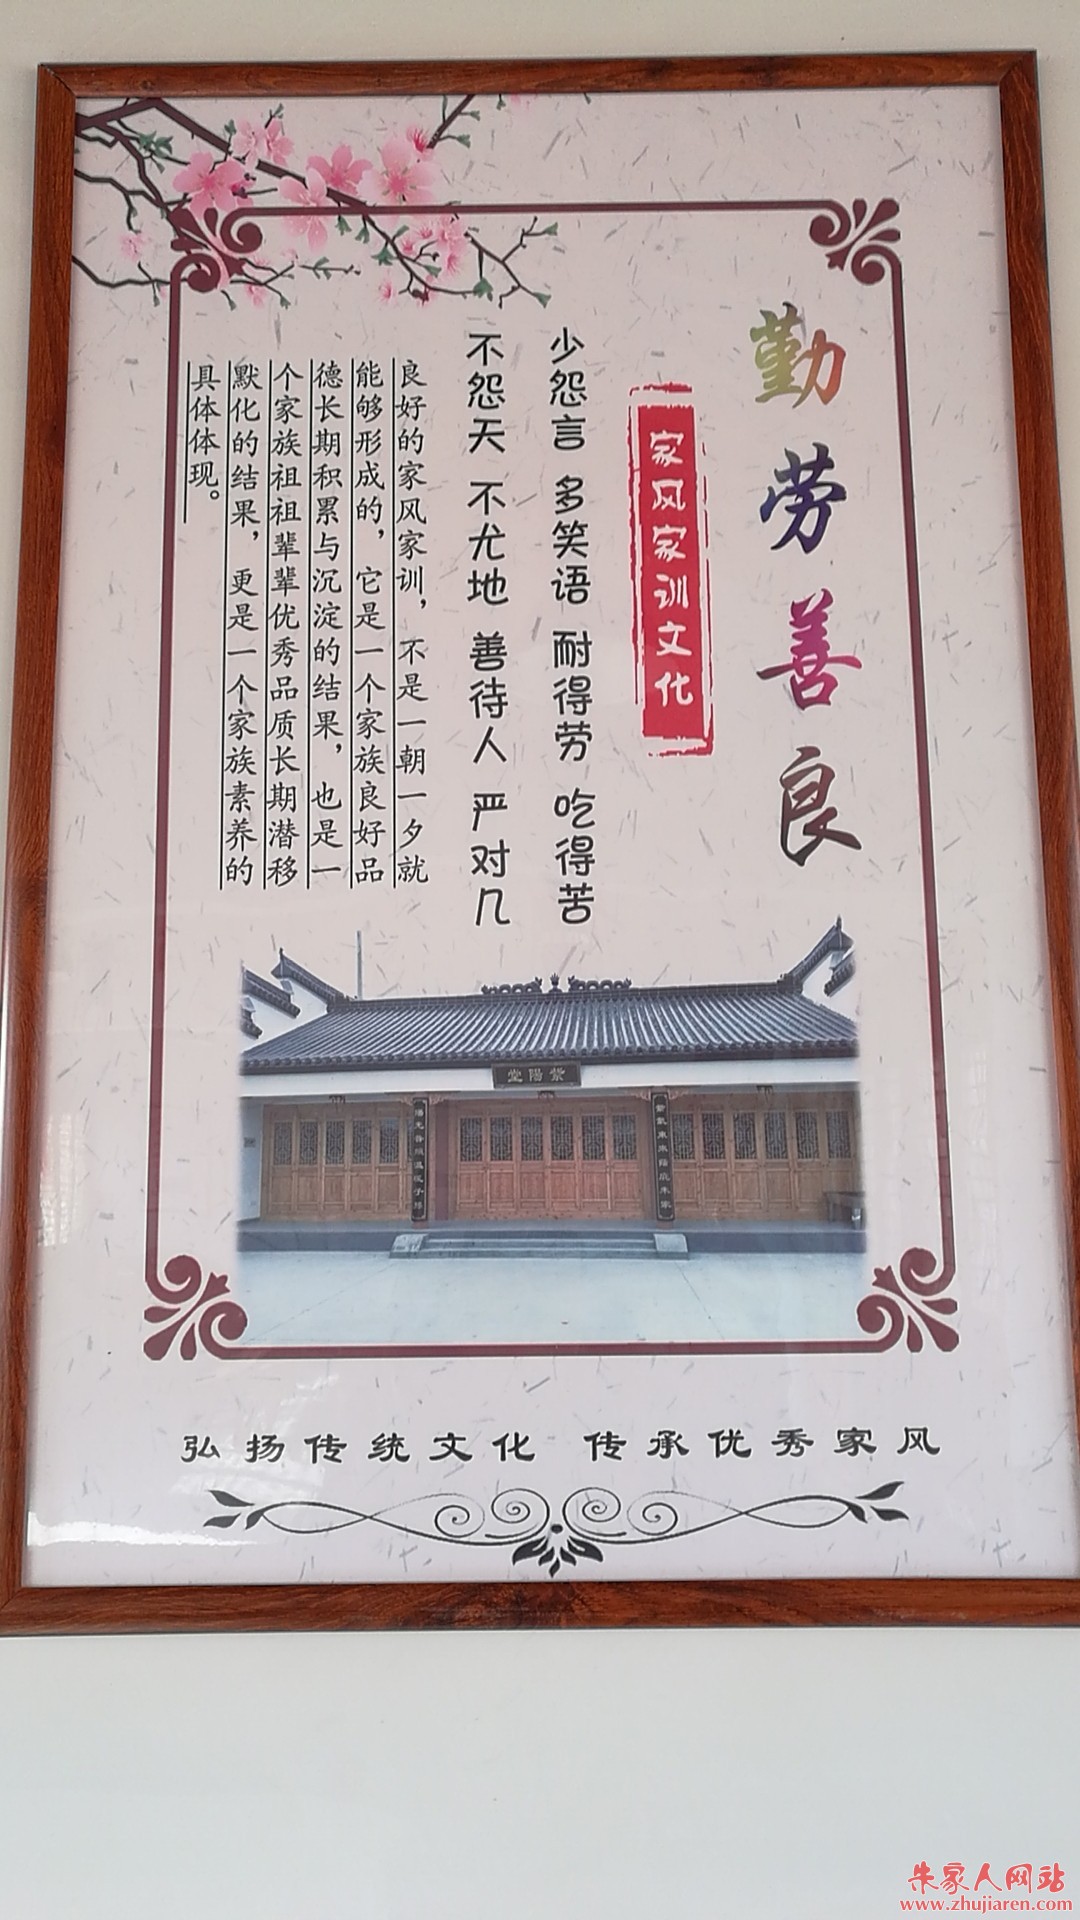 勤劳善良
家风家训文化
少怨言 多笑语 耐得劳 吃得苦
不怨天 不尤地 善待人 严对几
良好的家风家训，不是一朝一夕就
能够形成的，它是一个家族良好品
德长期积累与沉淀的结果，也是一
个家族祖祖辈辈优秀品质长期潜移
默化的结果，更是一个家族素养的
具体体现。
紫陽堂
弘扬传统文化 传承优秀家风
朱家人网站
www.zhujiaren.com